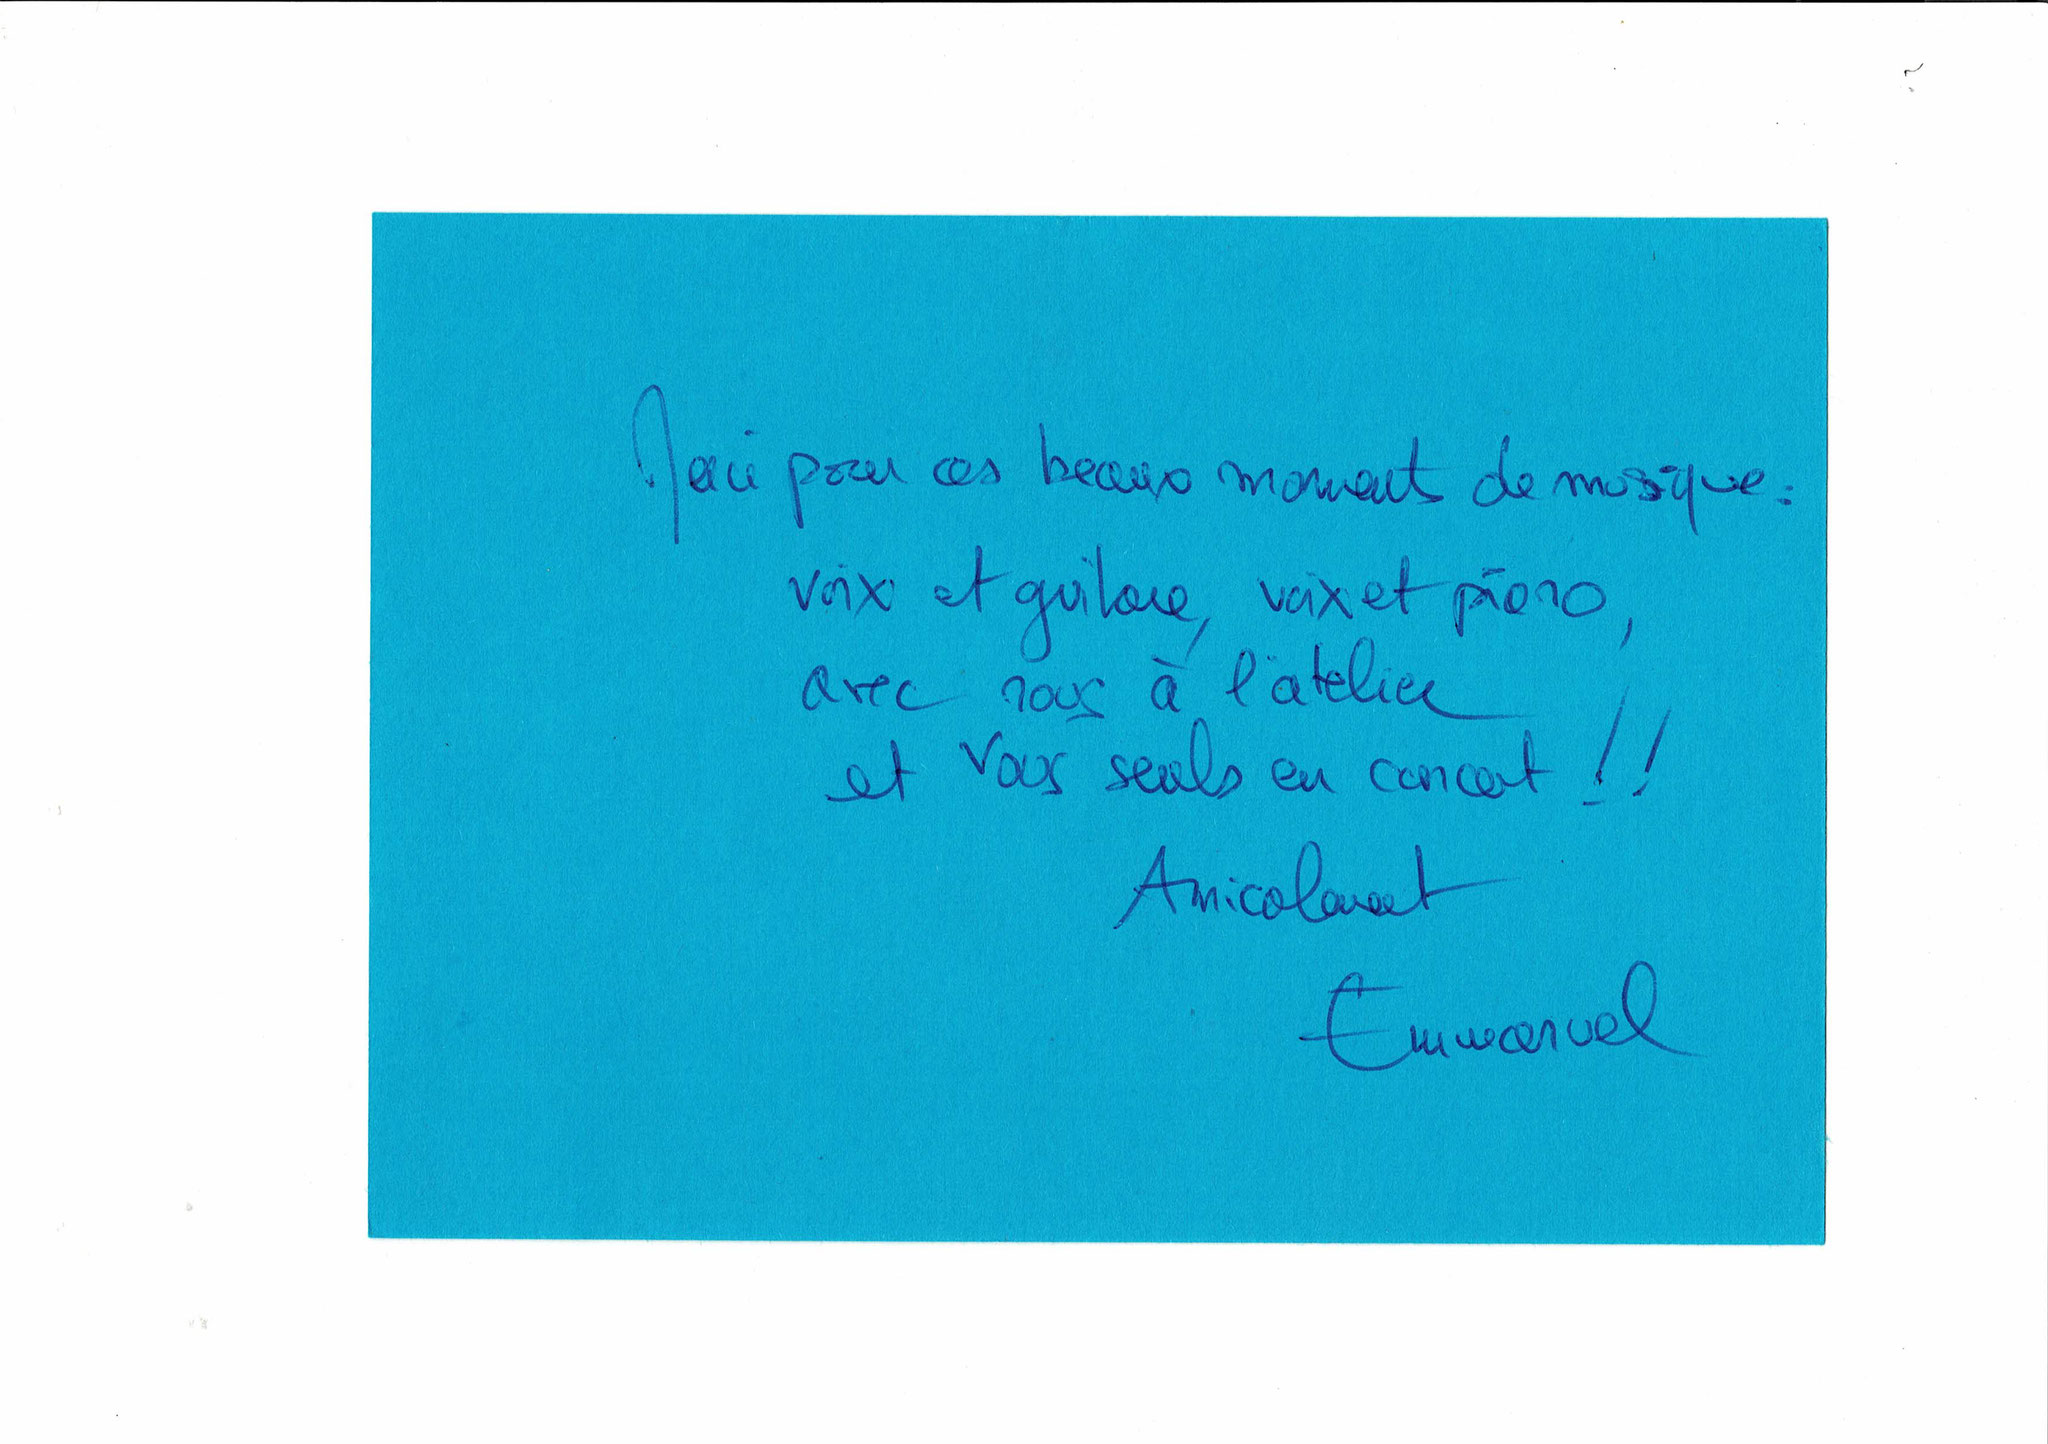 Merci pour ces beaux moments de musique :
voix et guitare, voix et piano,
avec nous à l'atelier
et vous seuls en concert !!
Amicalement
Emmanuel